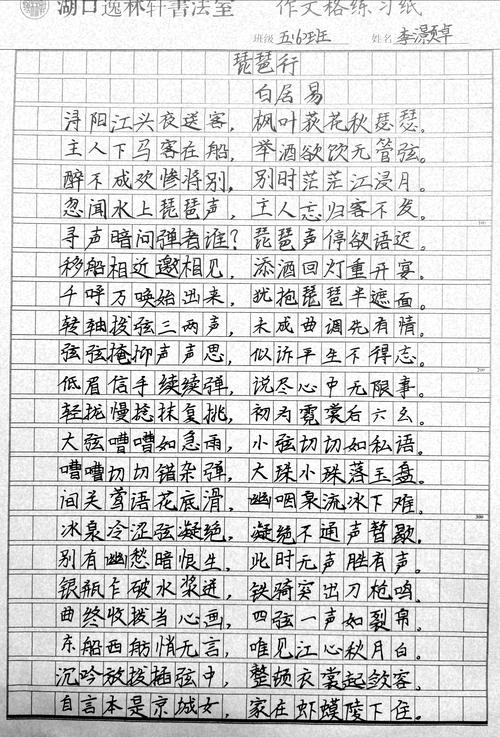 湖口逸林轩書法室 作文格练习纸
班级 五(6)班 姓名 李灏卓
琵琶行
白居易
浔阳江头夜送客，枫叶荻花秋瑟瑟。
主人下马客在船，举酒欲饮无管弦。
醉不成欢惨将别，别时茫茫江浸月。
忽闻水上琵琶声，主人忘归客不发。
寻声暗问弹者谁？琵琶声停欲语迟。
移船相近邀相见，添酒回灯重开宴。
千呼万唤始出来，犹抱琵琶半遮面。
转轴拨弦三两声，未成曲调先有情。
弦弦掩抑声声思，似诉平生不得志。
低眉信手续续弹，说尽心中无限事。
轻拢慢捻抹复挑，初为霓裳后六幺。
大弦嘈嘈如急雨，小弦切切如私语。
嘈嘈切切错杂弹，大珠小珠落玉盘。
间关莺语花底滑，幽咽泉流冰下难。
冰泉冷涩弦凝绝，凝绝不通声暂歇。
别有幽愁暗恨生，此时无声胜有声。
银瓶乍破水浆迸，铁骑突出刀枪鸣。
曲终收拨当心画，四弦一声如裂帛。
东船西舫悄无言，唯见江心秋月白。
沉吟放拨插弦中，整顿衣裳起敛容。
自言本是京城女，家在虾蟆陵下住。